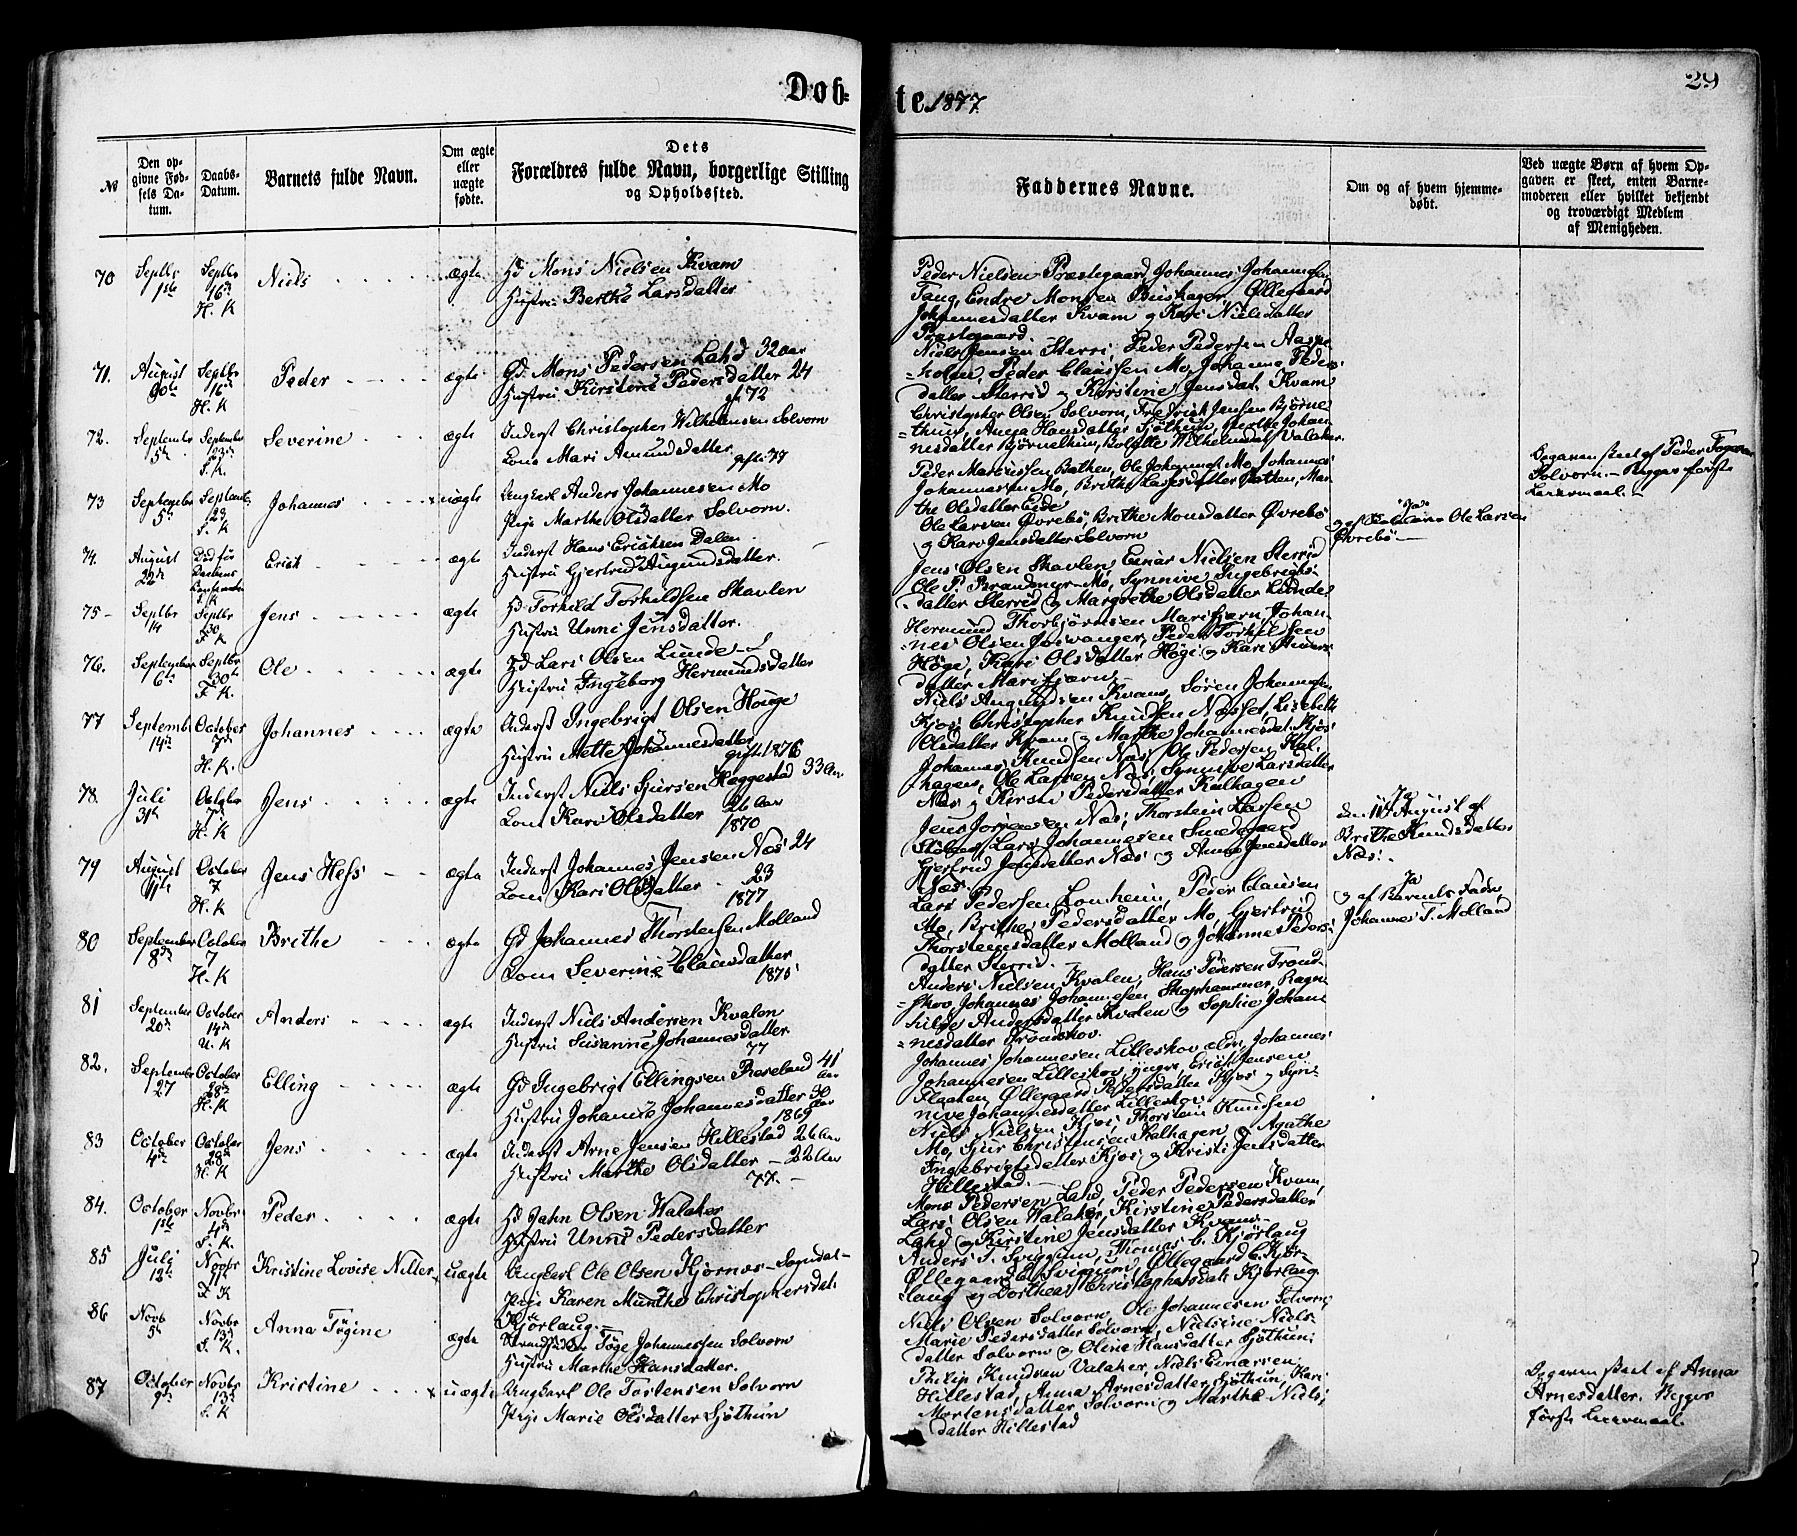 Døb=
te.
1877
29
№
Den op-
givne Fød-
sels Da-
tum.
Daabs-
Datum.
Barnets fulde Navn.
Om ægte
eller
uægte
fødte.
Dets
Forældres fulde Navn, borgerlige Stilling
og Opholdssted.
Faddernes Navne.
Om og af hvem hjemme-
døbt.
Ved uægte Børn af hvem Op-
gaven er skeet, enten Barne-
moderen eller hvilket bekjendt
og troværdigt Medlem
af Menigheden.
70
Septbr
1ste
Septbr
16de
H. K
Niels
ægte
Mons Nielsen Kvam
Hustru Berthe Larsdatter
Peder Nielsen Præstegaard, Johannes Johannesen
Taug, Endre Monsen Buskager, Øllegaard
Johannesdatter Kvam og Kari Nielsdatter
Præstegaard.
71.
August
Septbr
16de
H. K
Peder
ægte
Gd. Mons Pedersen Lahd 32 aar
Hustru Kirstine Pedersdatter 24
72
Niels Jensen Sterri, Peder Pedersen
Peder Claussen Mo, Johanne Peders-
datter Sterrid og Kirstine Jensdat. Kvam
72.
September
5te
September
23de
S. K.
Severine
ægte
Inderst Christopher Wilhelmsen Solvorn
Kone Mari Amundsdatter
Christopher Olsen Solvorn, Fredrick Jensen Bjørne-
thun, Anna Hansdatter Sjøthun, Berthe Johan-
nesdatter Bjørnethun, Bolette Wilhelmsdat Valaker.
73
September
5te
Septemb.
23
S. K
Johannes
uægte
Ungkarl Anders Johannesen Mo
Pige Marthe Olsdatter Solvorn.
Peder Mathissen Bathen, Ole Johannes Mo, Johannes
Johannesen Mo, Brithe Larsdatter Bathen, Mar-
the Olsdatter Eide
Solvorn. - Begges første
Leiermaal.
74.
August
22de
Erick
ægte
Inderst Hans Ericksen Dalen
Hustru Gjertrud Augundsdatter.
Ole Larsen Øvrebø, Brithe Monsdatter Øvrebø
og Kari Jensdatter Solvorn
Ja
Ole Larsen
Øvrebø
75
Septbr
14
Septbr
30
F. K
Jens
ægte
Torkild Torkildsen Skavlen
Hustru Unni Jensdatter.
Jens Olsen Skavlen, Einar Nielsen Sterrid
Ole P. Brandmyr Mo, Synnive Ingebrigts-
datter Sterrid og Margrethe Olsdatter Lunde
76.
September
6te
Septbr
30te
F. K.
Ole
ægte
Lars Olsen Lunde
Hustru Ingeborg Hermundsdatter
Hermund Thorbjørnsen Marifjæren, Johan-
nes Olsen Joswanger, Peder Torkildsen
Høge, Kari Olsdatter Høgi og Kari
datter Marifjæren
77
Septembr
14de
October
7de
H. K.
Johannes
ægte
Inderst Ingebrigt Olsen Houge
Hustru Mette Johannesdatter
gift 1876
Niels Augundsen Kvam, Søren Johannesen
Kjos, Christopher Knudsen Næsset, Lisebeth
Olsdatter Kvam og Marthe Johannesdat. Kjos
78.
Juli
31te
October
7de
H. K
Jens
ægte
Inderst Niels Sjursen Heggestad 33 Aar
Kone Kari Olsdatter 26 Aar
1870
Johannes Knudsen Næs, Ole Pedersen Kal-
hagen, Ole Larsen Næs, Synneve Larsdatter
Næs og Kirsti Pedersdatter Kalhagen
79
August
11te
October
7
H. K
Jens Hess
ægte
Inderst Johannes Jensen Næs 24
Kone Kari Olsdatter 23
1877
Jens Jørgensen Næs, Thorstein Larsen
Lars Johannesen Smedegaard
Gjertrud Jensdatter Næs og Anna Jensdatter
Næs.
Ja
August af
Brithe Knudsdatter
Næs.
80
September
18de
October
7
H. K
Brithe
ægte
Gd Johannes Thorstensen Molland
Kone Severine Clausdatter
1875
Lars Pedersen Lomheim, Peder Clausen
Mo, Brithe Pedersdatter Mo, Gjertrud
Thorsteinsdatter Molland og Johanne Peders-
datter Sterrid.
Ja
og af Barnets Fader
Johannes T. Molland
81
September
20de
October
14de
U. K
Anders
ægte
Inderst Niels Andersen Kvalen
Hustru Susanne Johannesdatter
77
Anders Nielsen Kvalen, Hans Pedersen Trond-
skov Johannes Johannesen Skophammer, Ragn-
hilde Andersdatter Kvalen og Sophie Johan-
nesdatter Trondskov.
82.
September
27
October
28de
H. K
Elling
ægte
Gd Ingebrigt Ellingsen Røseland 41
Aar
Hustru Johanne Johannesdatter
1869
Johannes Johannesen Lilleskov ældr., Johannes
Johannesen Lilleskov yngre, Erick Jensen
Flaaten, Øllegaard Pedersdatter Kjos og Syn-
nive Johannesdatter Lilleskov
83
October
4de
October
28
H. K
Jens
ægte
Inderst Arne Jensen Hillestad 26 Aar
Hustru Marthe Olsdatter - 22 Aar
77.
Niels Nielsen Kjos, Thorstein Knudsen
Mo, Sjur Christensen Kalhagen, Agathe
Ingebrigtsdatter Kjos og Kristi Jensdatter
Hillestad.
84.
October
1ste
Novbr
4de
S. K.
Peder
ægte
Jahn Olsen Walaker
Hustru Unni Pedersdatter
Mons Pedersen Lahd, Peder Pedersen Kvam,
Lars Olsen Walaker, Kirstine Pedersdatter
Lahd og Kirstine Jensdatter Kvam
85
Juli
12te
Novbr
11te
F. K
Kristine Lovise
uægte
Ungkarl Ole Olsen Kjørnæs - Sogndal
Pige Karen Munthe Christophersdat.
Kjørlaug
Anders T. Sviggum, Thomas C. Kjørlaug
Øllegaard Svigum, Øllegaard C. Kjør-
laug og Dorthea Christophersdat. Kjørlaug.
86
Novb
5te
Novbr
13de
S. K.
Anna Tøgine
ægte
Strandsidder Tøge Johannessen Solvorn
Hustru Marthe Hansdatter.
Niels Olsen Solvorn, Ole Johannesen Solvorn,
Marie Pedersdatter Solvorn, Nielsine Niels-
datter Solvorn og Oline Hansdatter Sjøthun
87
October
9de
Novbr
13de
S. K
Kristine
uægte
Ungkarl Ole Torstensen Solvorn
Pige Marie Olsdatter Sjøthun
Philip Knudsen Valaker, Niels Einarsen
Hillestad, Anna Arnesdatter Sjøthun, Kari
Mortensdatter Solvorn og Marthe Niels-
datter Hillestad
Opgaven skeet af Anna
Arnesdatter. Begges
første Leiermaal.